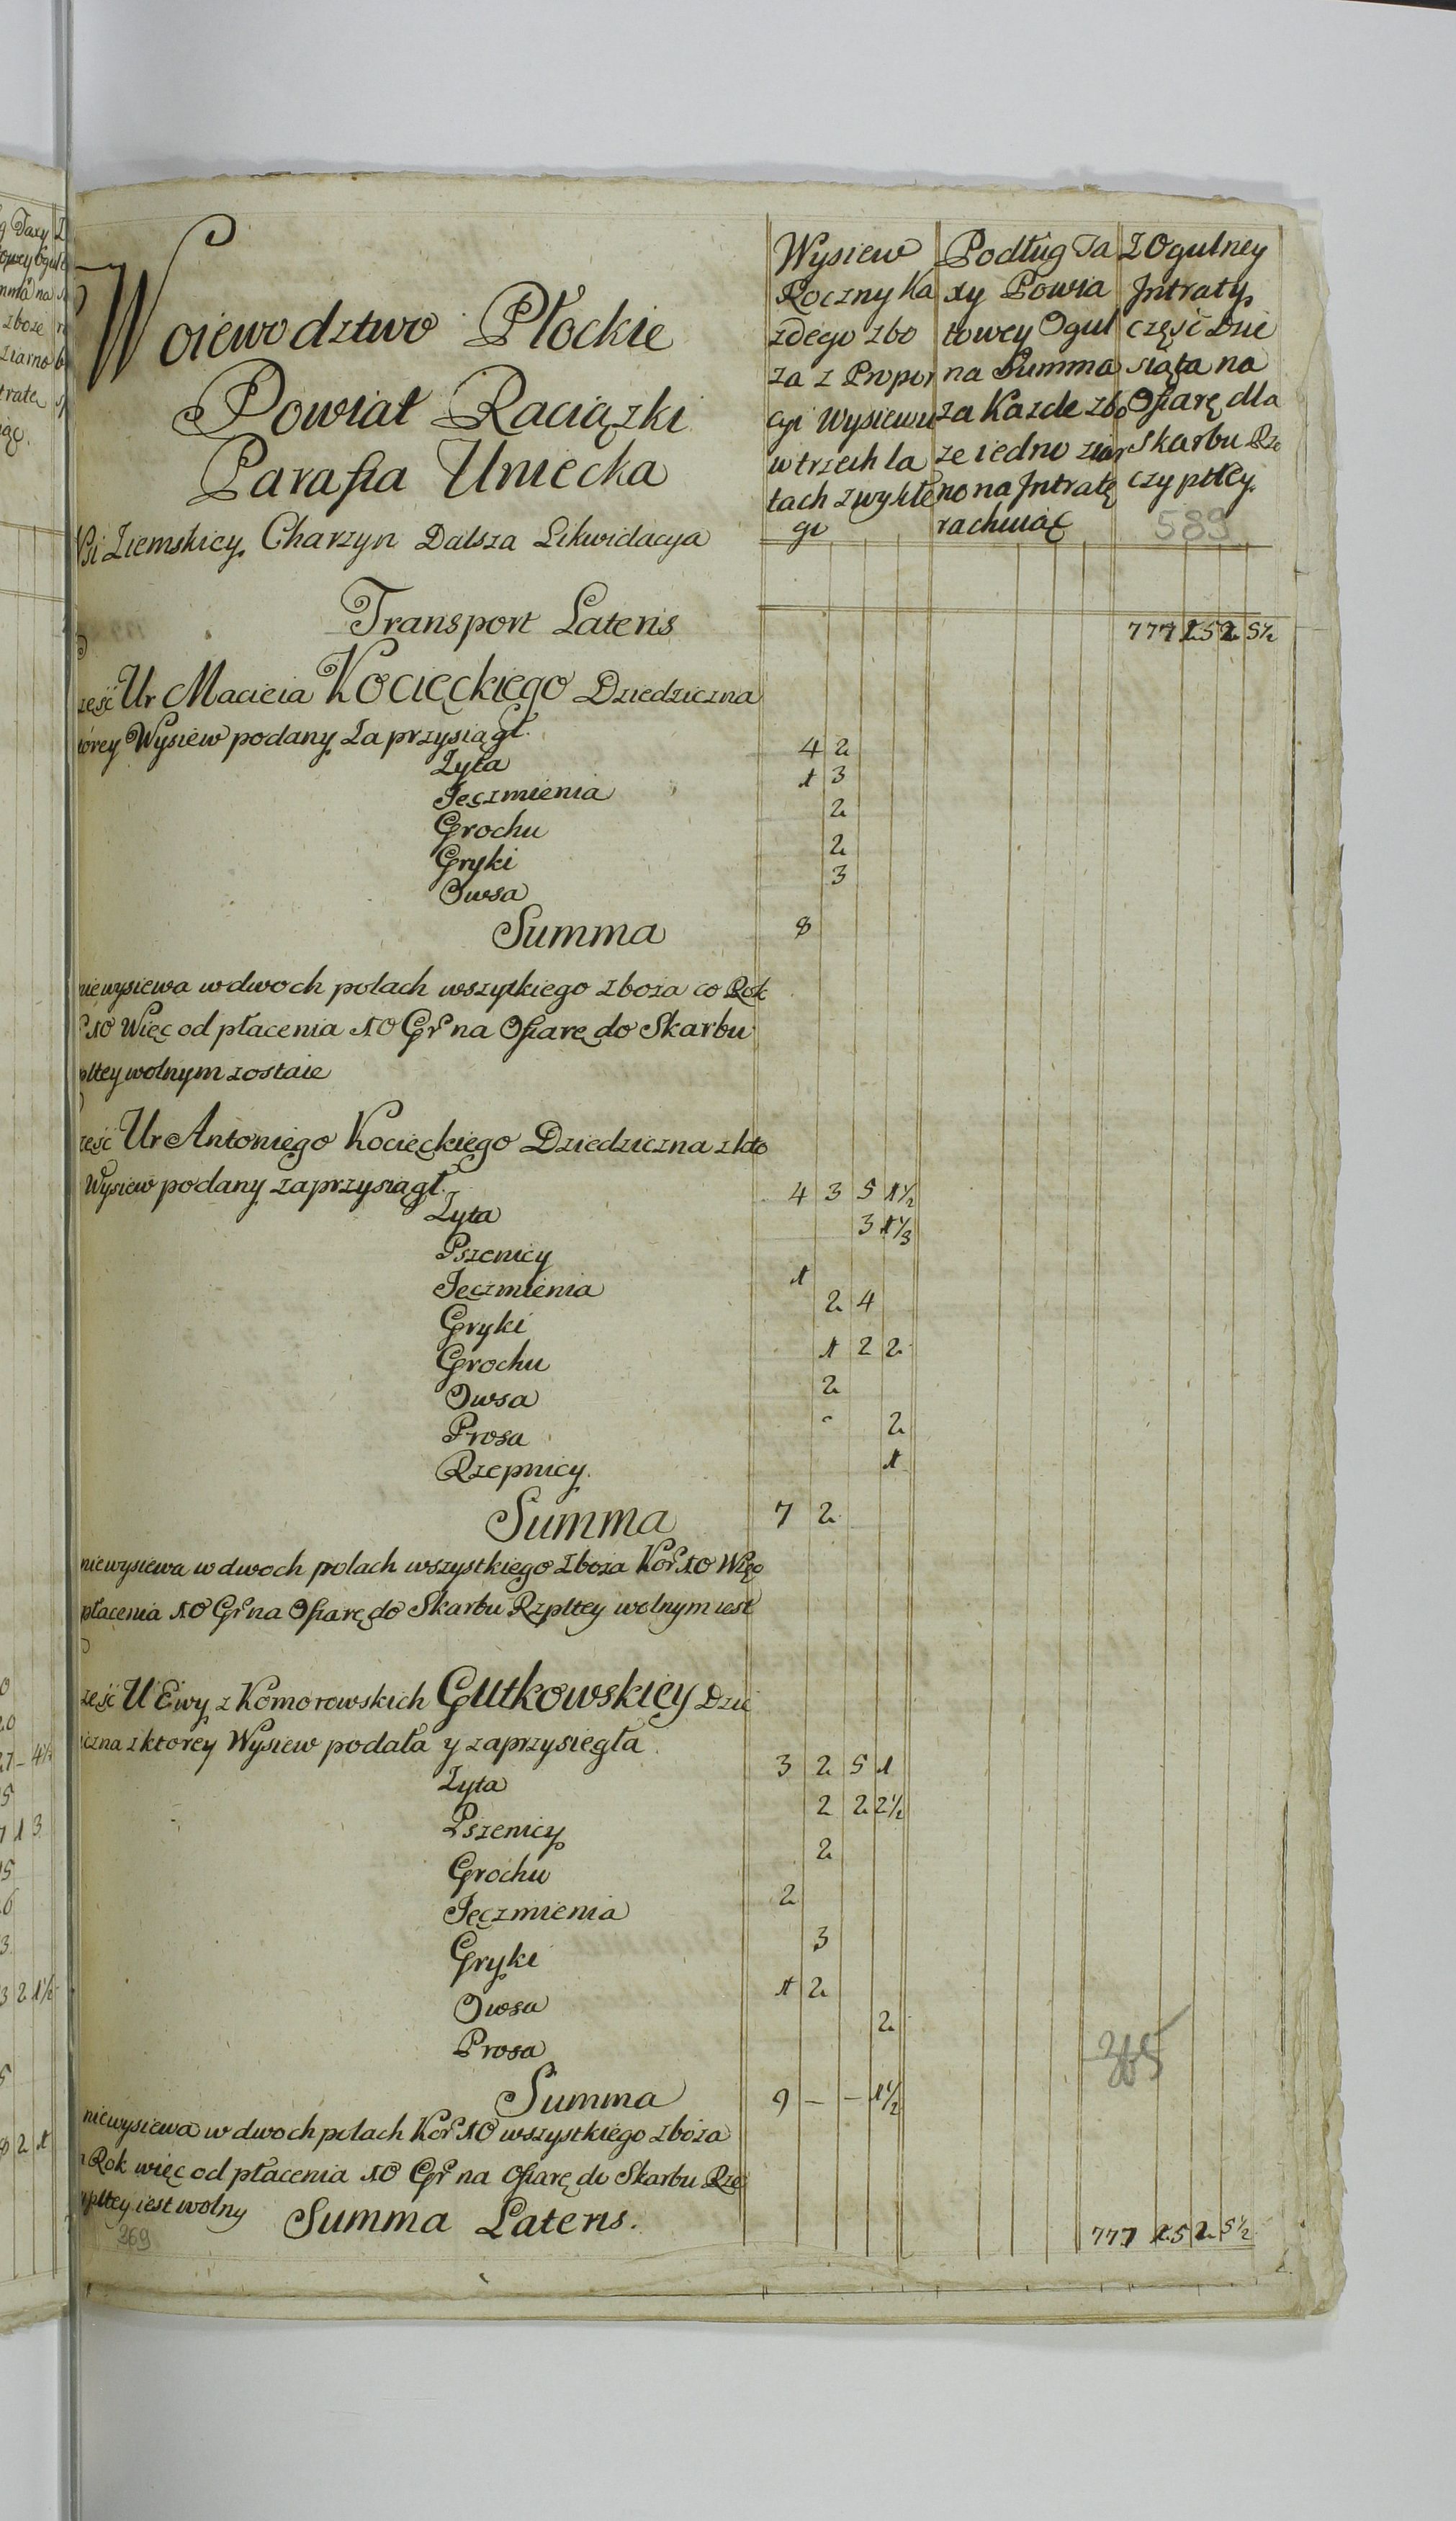 Woiewodztwo Płockie
Powiat Raciązki
Parafia Uniecka
Wsi Ziemskiey Charzyn Dalsza Likwidacya
Wysiew
Roczny Ka
zdego zbo
za z Propor
cyi Wysiewu
w trzech la
tach zwykłe
go
Podług Ta
xy Powia
towey Ogul
na Summa
za Kazde zbo
ze iedno ziar
no na Jntratę
rachuiąc
Z Ogulney
Jntraty
częsć Dzie
siąta na
Ofiarę dla
Skarbu Rze
czypltey.
589
Transport Lateris 777 15 2 5½
zęść Ur Macieia Kocięckiego Dziedziczna
tórey Wysiew podany zaprzysiągł.
Zyta 4 2
Jęczmienia 1 3
Grochu 2
Gryki 2
Owsa 3
Summa 8
niewysiewa w dwoch polach wszytkiego zboza co Rok
10 Więc od płacenia 10 Gr na Ofiarę do Skarbu
pltey wolnym zostaie
zęść Ur Antoniego Kocięckiego Dziedziczna z kto
Wysiew podany zaprzysiągł.
Zyta 4 3 5 1½
Pszenicy 3 1⅓
Jęczmienia 1
Gryki 2 4
Grochu 1 2 2
Owsa 2
Prosa 2
Rzepnicy. 1
Summa 7 2
niewysiewa w dwoch polach wszystkiego zboza Kor 10 Więc
płacenia 10 Gr na Ofiarę do Skarbu Rzpltey wolnym iest
zęść U Ewy z Komorowskich Gutkowskiey Dzie
iczna z ktorey Wysiew podała y zaprzysiegła
Zyta 3 2 5 1
Pszenicy 2 2 2½
Grochu 2
Jęczmienia 2
Gryki 3
Owsa 1 2
Prosa 2
Summa 9 – – 1½
niewysiewa w dwoch polach Kor 10 wszystkiego zboza
Rok więc od płacenia 10 Gr na Ofiarę do Skarbu Rze
ypltey iest wolny
Summa Lateris. 777 15 2 5½
269